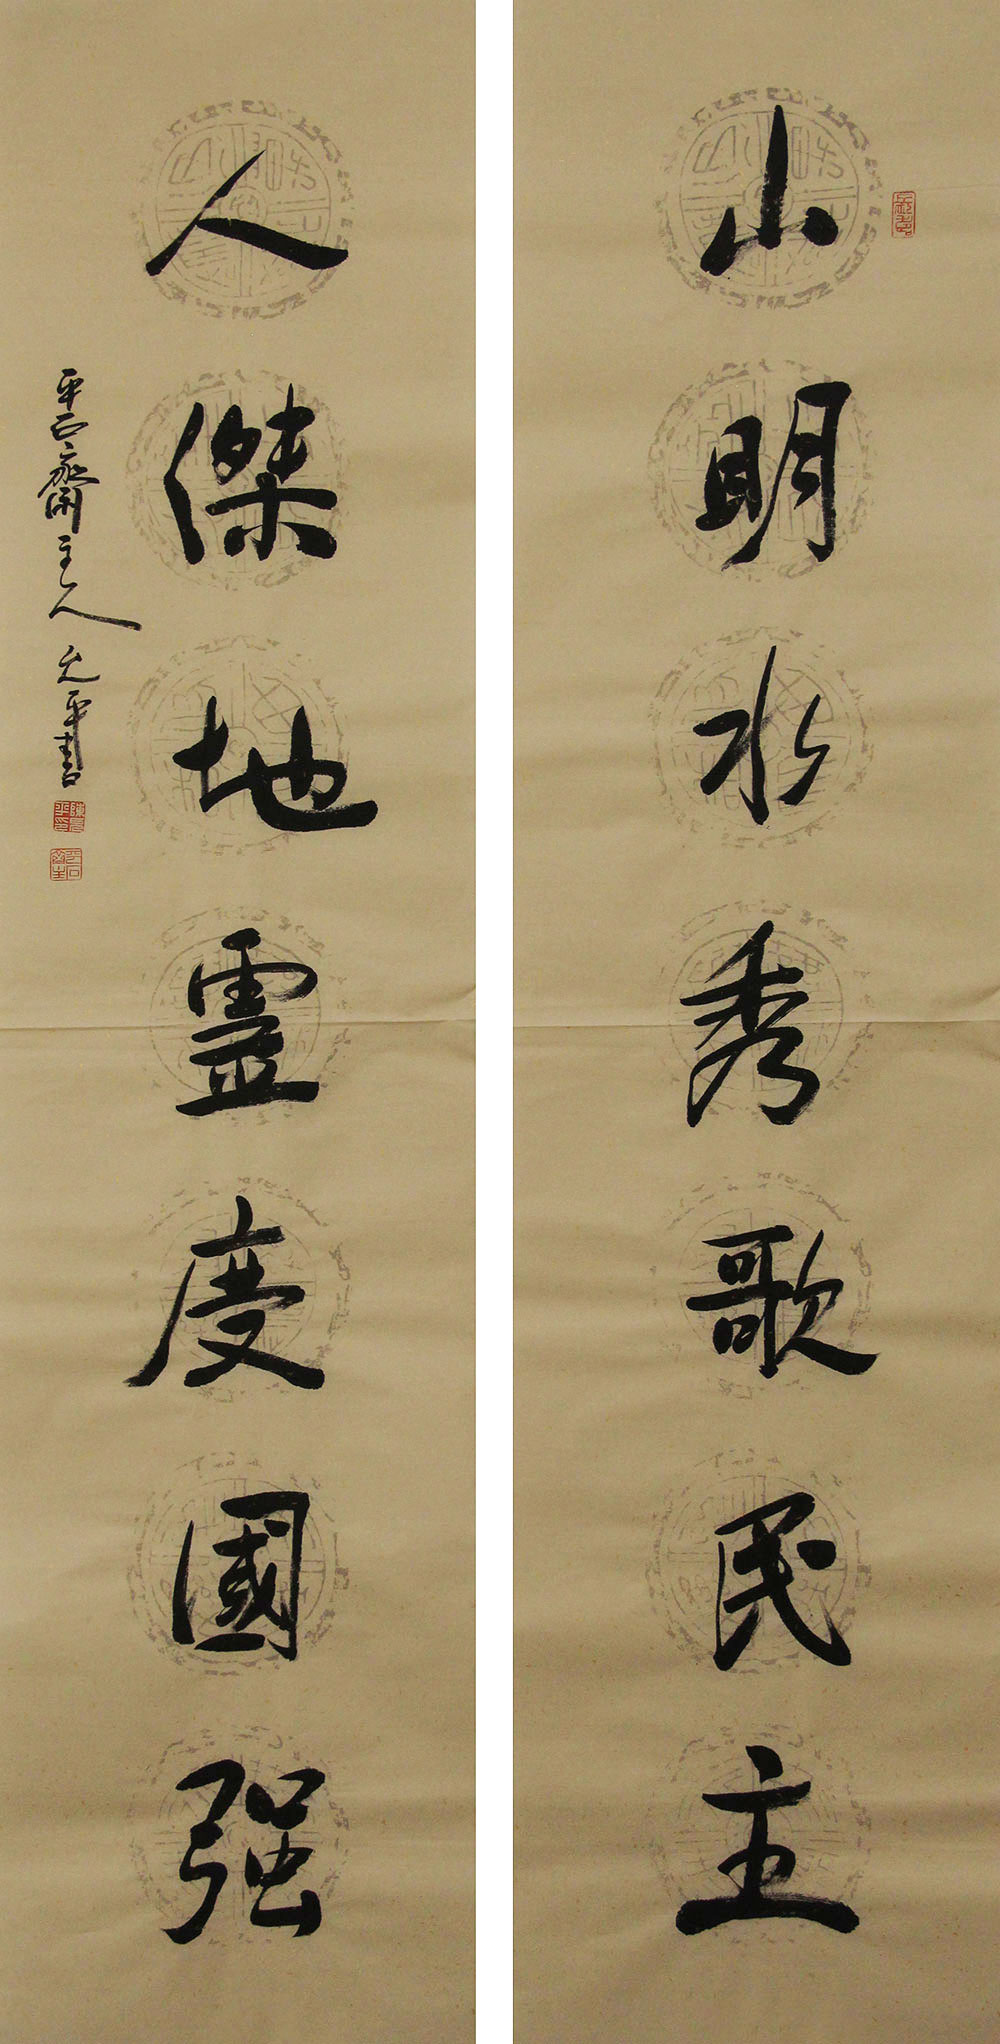 山明水秀歌民主
人傑地靈慶國强
平石齋主人允平書